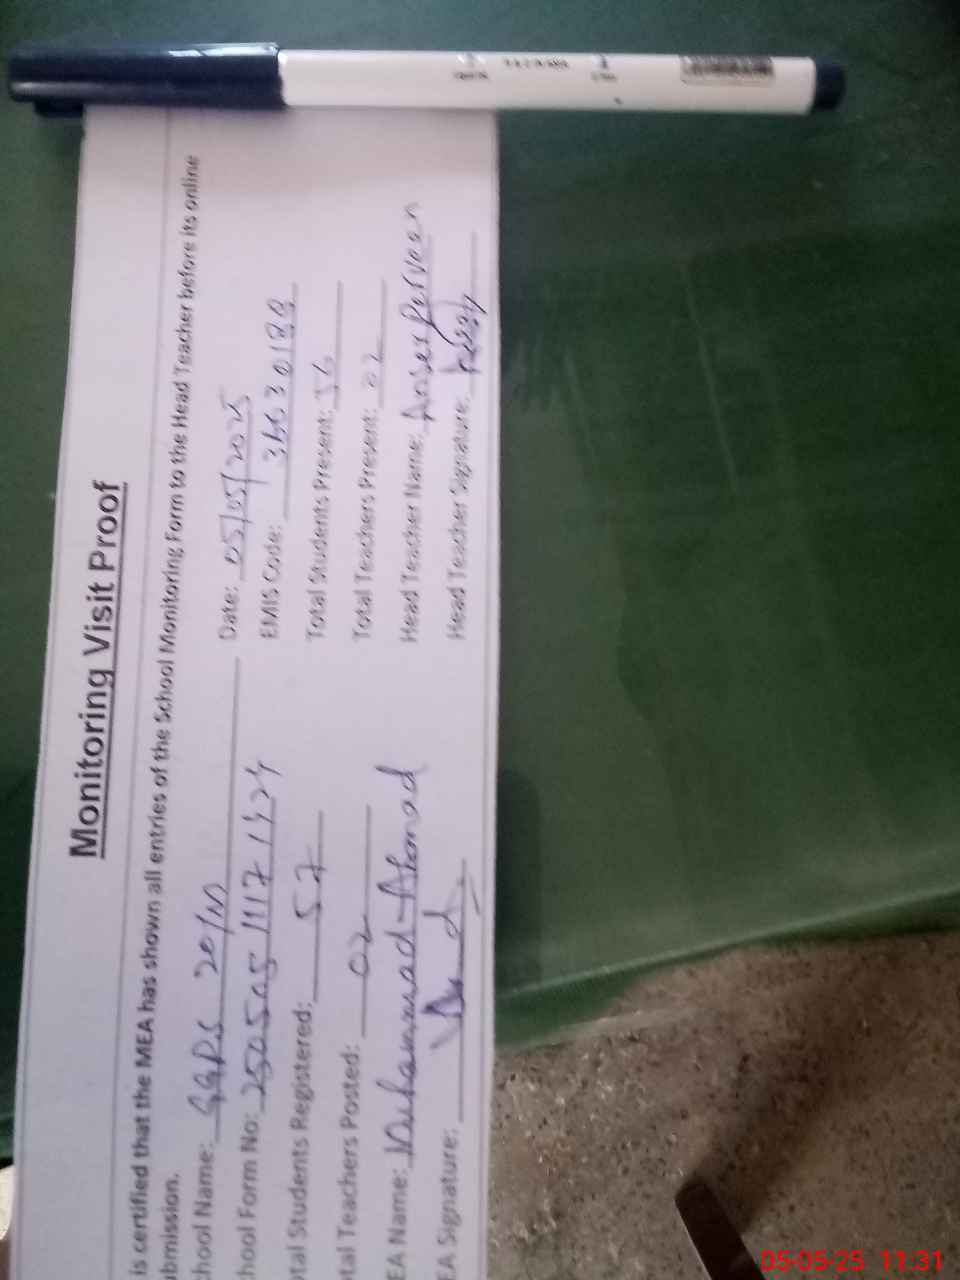 Monitoring Visit Proof
is certified that the MEA has shown all entries of the School Monitoring Form to the Head Teacher before its online
ubmission.
chool Name: GGPS 20/M Date: 05/05/2025
hool Form No: 25050511171324 EMIS Code: 36630188
otal Students Registered: 57 Total Students Present: 36
tal Teachers Posted: 02 Total Teachers Present: 02
EA Name: Muhammad Ahmad Head Teacher Name: Anser Perveen
EA Signature: Head Teacher Signature:
05-05-25 11:31